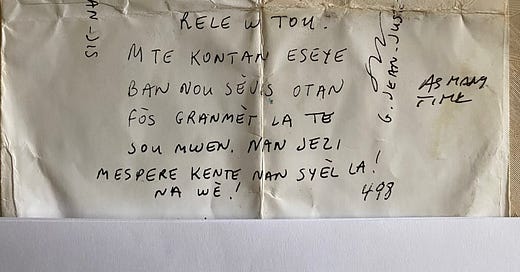 RELE W TOU.
M TE KONTAN ESEYE
BAN NOU SÈVIS OTAN
FÒS GRANMÈT LA TE
SOU MWEN. NAN JEZI
MESPERE KENTE NAN SYÈL LA!
NA WÈ!
498
G. JEAN-JUSTE
AS MANY
TIME